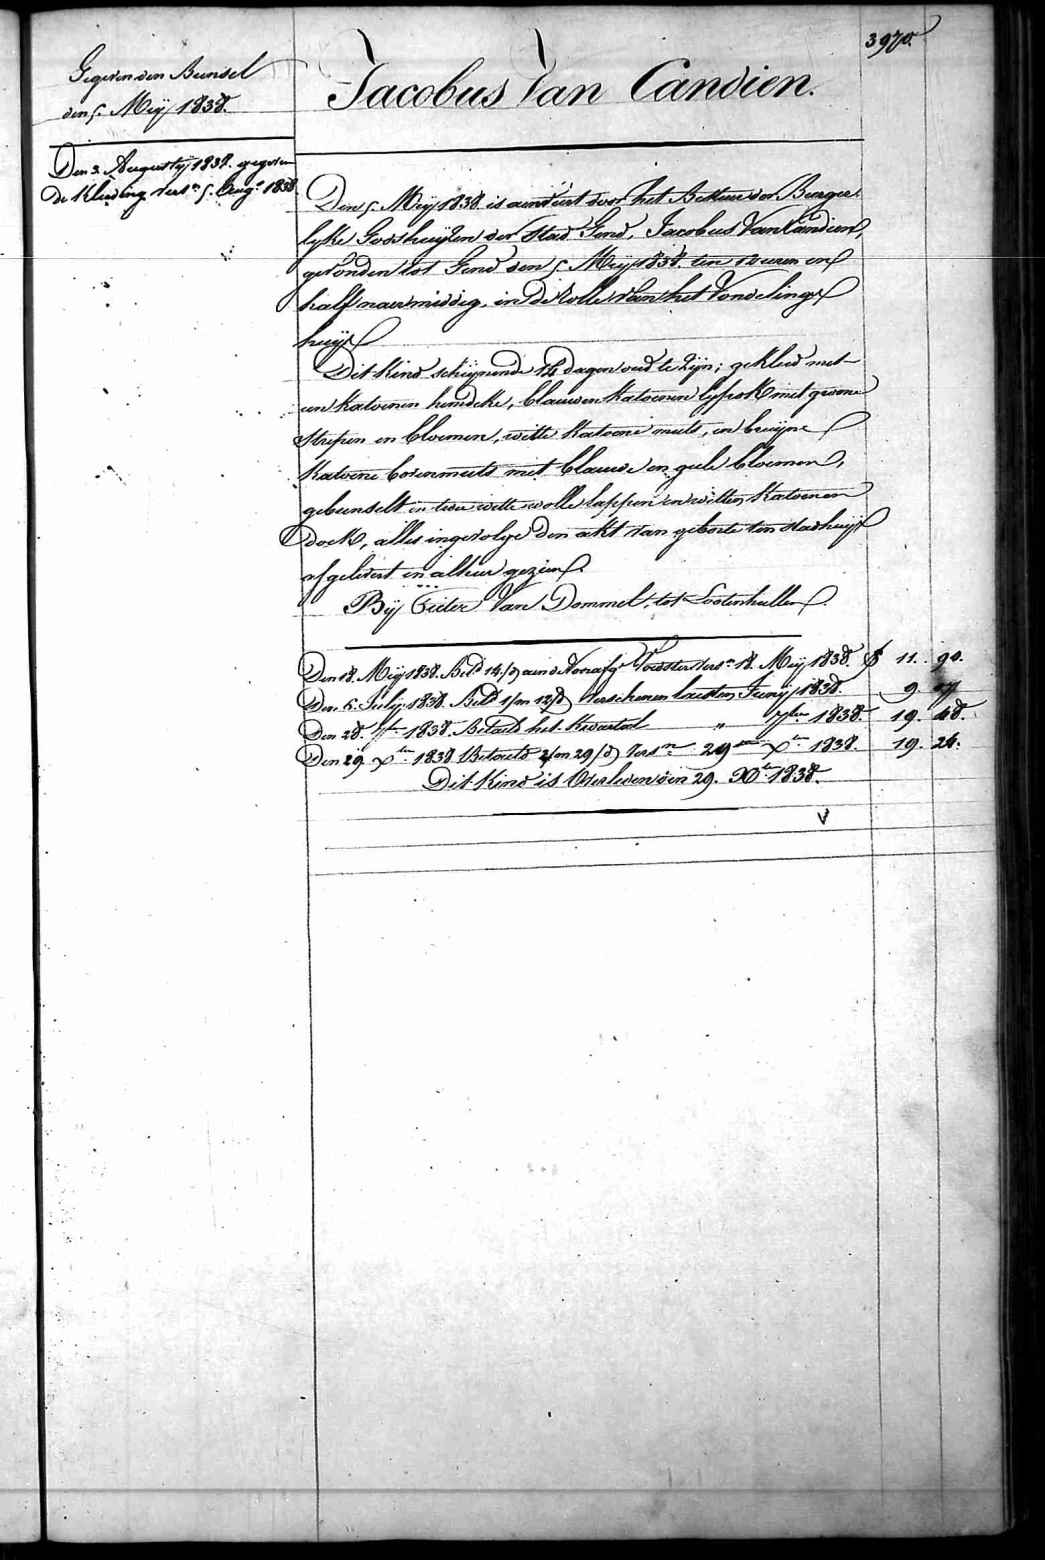 3970.
Gegeven den Bunsel
den 5. Meÿ 1838.
Den 3. Augusty 1838. gegeven
de Kleeding vers.n 5. Aug.t 1838
Jacobus Van Candien.
Den 5. Meÿ 1838. is aenveirt door het Bestuer der Burger-
lyke Godshuyzen der Stad Gend, Jacobus Van Candien,
gevonden tot Gend den 5 Meÿ 1838. ten twee uren en
half naermiddag, in de rolle van het Vondelings
huys
Dit kind schynende 14 dagen oud te zyn; gekleed met
een katoenen hemdeke, blauwen katoenen lyfrok met groene
strepen en bloemen, witte katoene muts, en bruyne
katoene bovenmuts met blauwe en gele bloemen,
gebunselt in twee witte wolle lappen en witten katoenen
doek, alles ingevolge den akt van geboorte ten stadhuyse
afgelevert en alhier gezien.
Bÿ Pieter Van Dommel, tot Lootenhullen.
Den 18. Meÿ 1838. Bet.d 14/d aen de Voedster vers.n 18. Meÿ 1838. 11. 90.
Den 6. Julÿ 1838. Bet.d 1/m 12/d verschenen laesten Junÿ 1838. 9. 07
Den 28. 7.ber 1838. Betaeld het kwartal " 7.ber 1838. 19. 48.
Den 29 X.ber 1838. Betaeld 2/m 29/d vers.n 29 X.ber 1838. 19. 26.
Dit Kind is Overleden den 29. X.ber 1838.
V